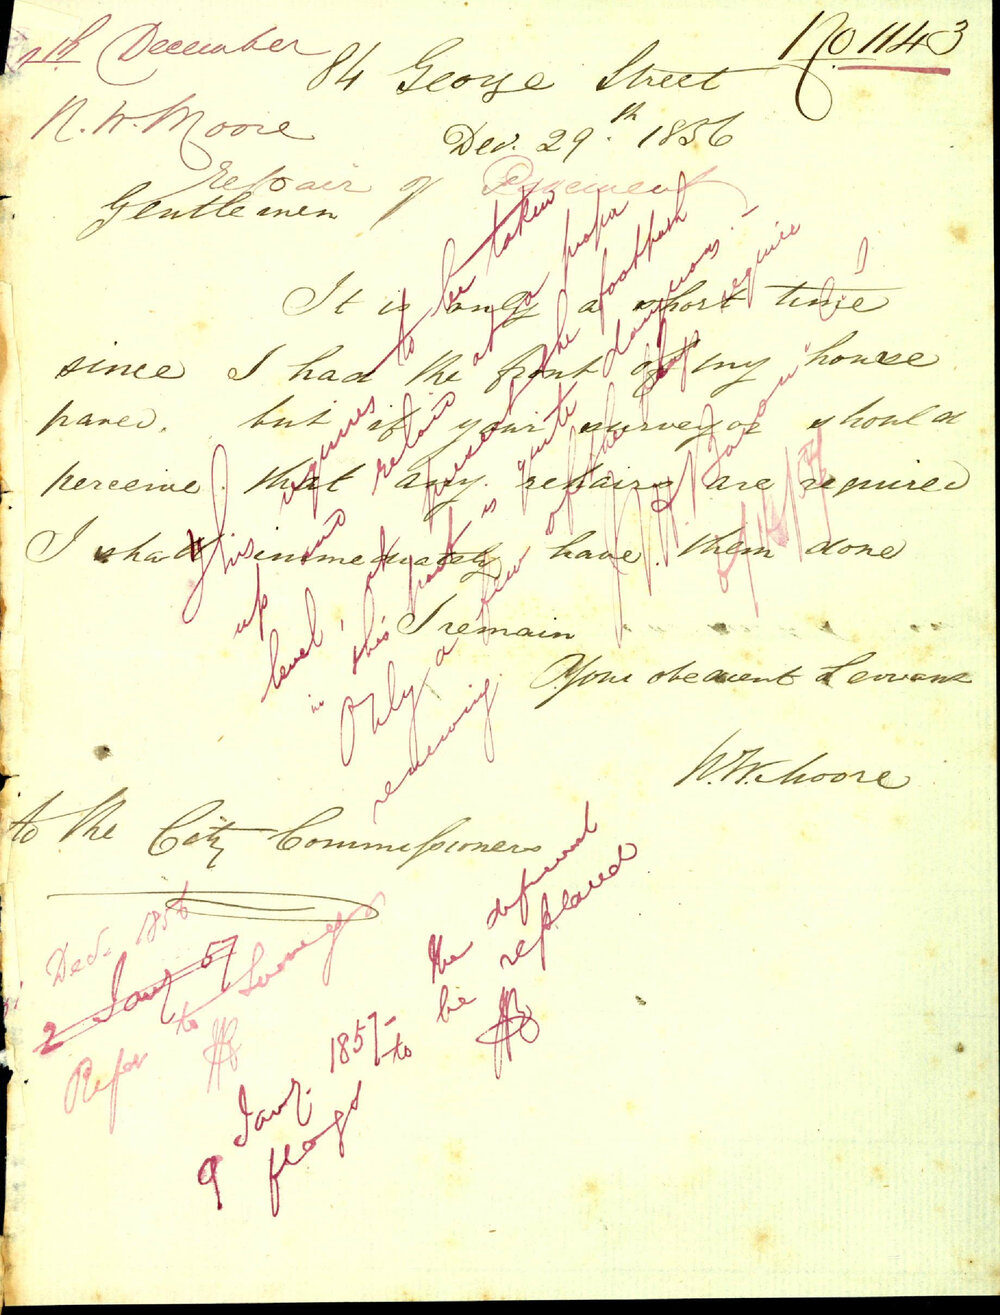 No 1143
December
84 George Street
N. W. Moore
Dec. 29.th 1856
Repair of Pavement
Gentlemen
It is only a short time
since I had the front of my house
paved. but if your surveyor should
perceive that any repairs are required
I shall immediately have them done
I remain
Your obedient Servant
W. W. Moore
to the City Commissioners
This requires to be taken
up and relaid at a proper
level, at present the footpath
in this part is quite dangerous.
Only a few of the flags require
renewing.
Dec. 1856
2 Jany 57
Refer to Surveyor
9 Jany. 1857 - the defficient
flags to be replaced